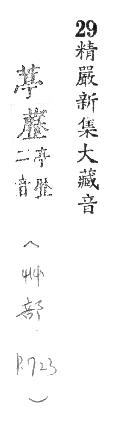 29精嚴新集大藏音
葶 亭
二音
（艸部. P.723）